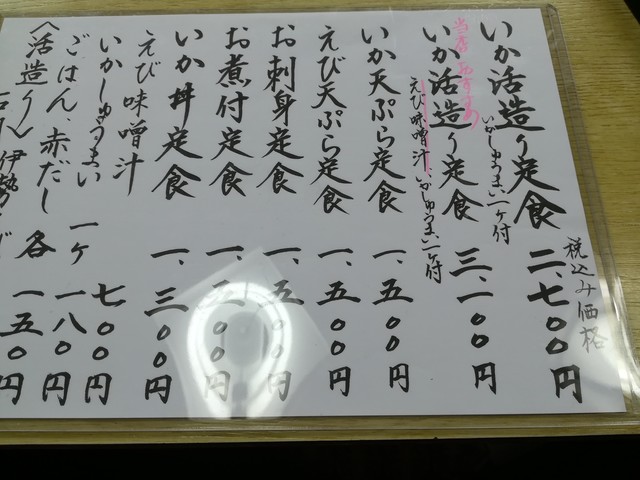 税込み価格
いか活造り定食 二、七〇〇円
いかしゅうまい一ヶ付
当店おすすめ
いか活造り定食 三、一〇〇円
えび味噌汁、いかしゅうまい一ヶ付
いか天ぷら定食 一、五〇〇円
えび天ぷら定食 一、五〇〇円
お刺身定食 一、五〇〇円
お煮付定食 一、五〇〇円
いか丼定食 一、三〇〇円
えび味噌汁 七〇〇円
いかしゅうまい 一ヶ 一八〇円
ごはん、赤だし 各 一五〇円
〈活造り〉
伊勢